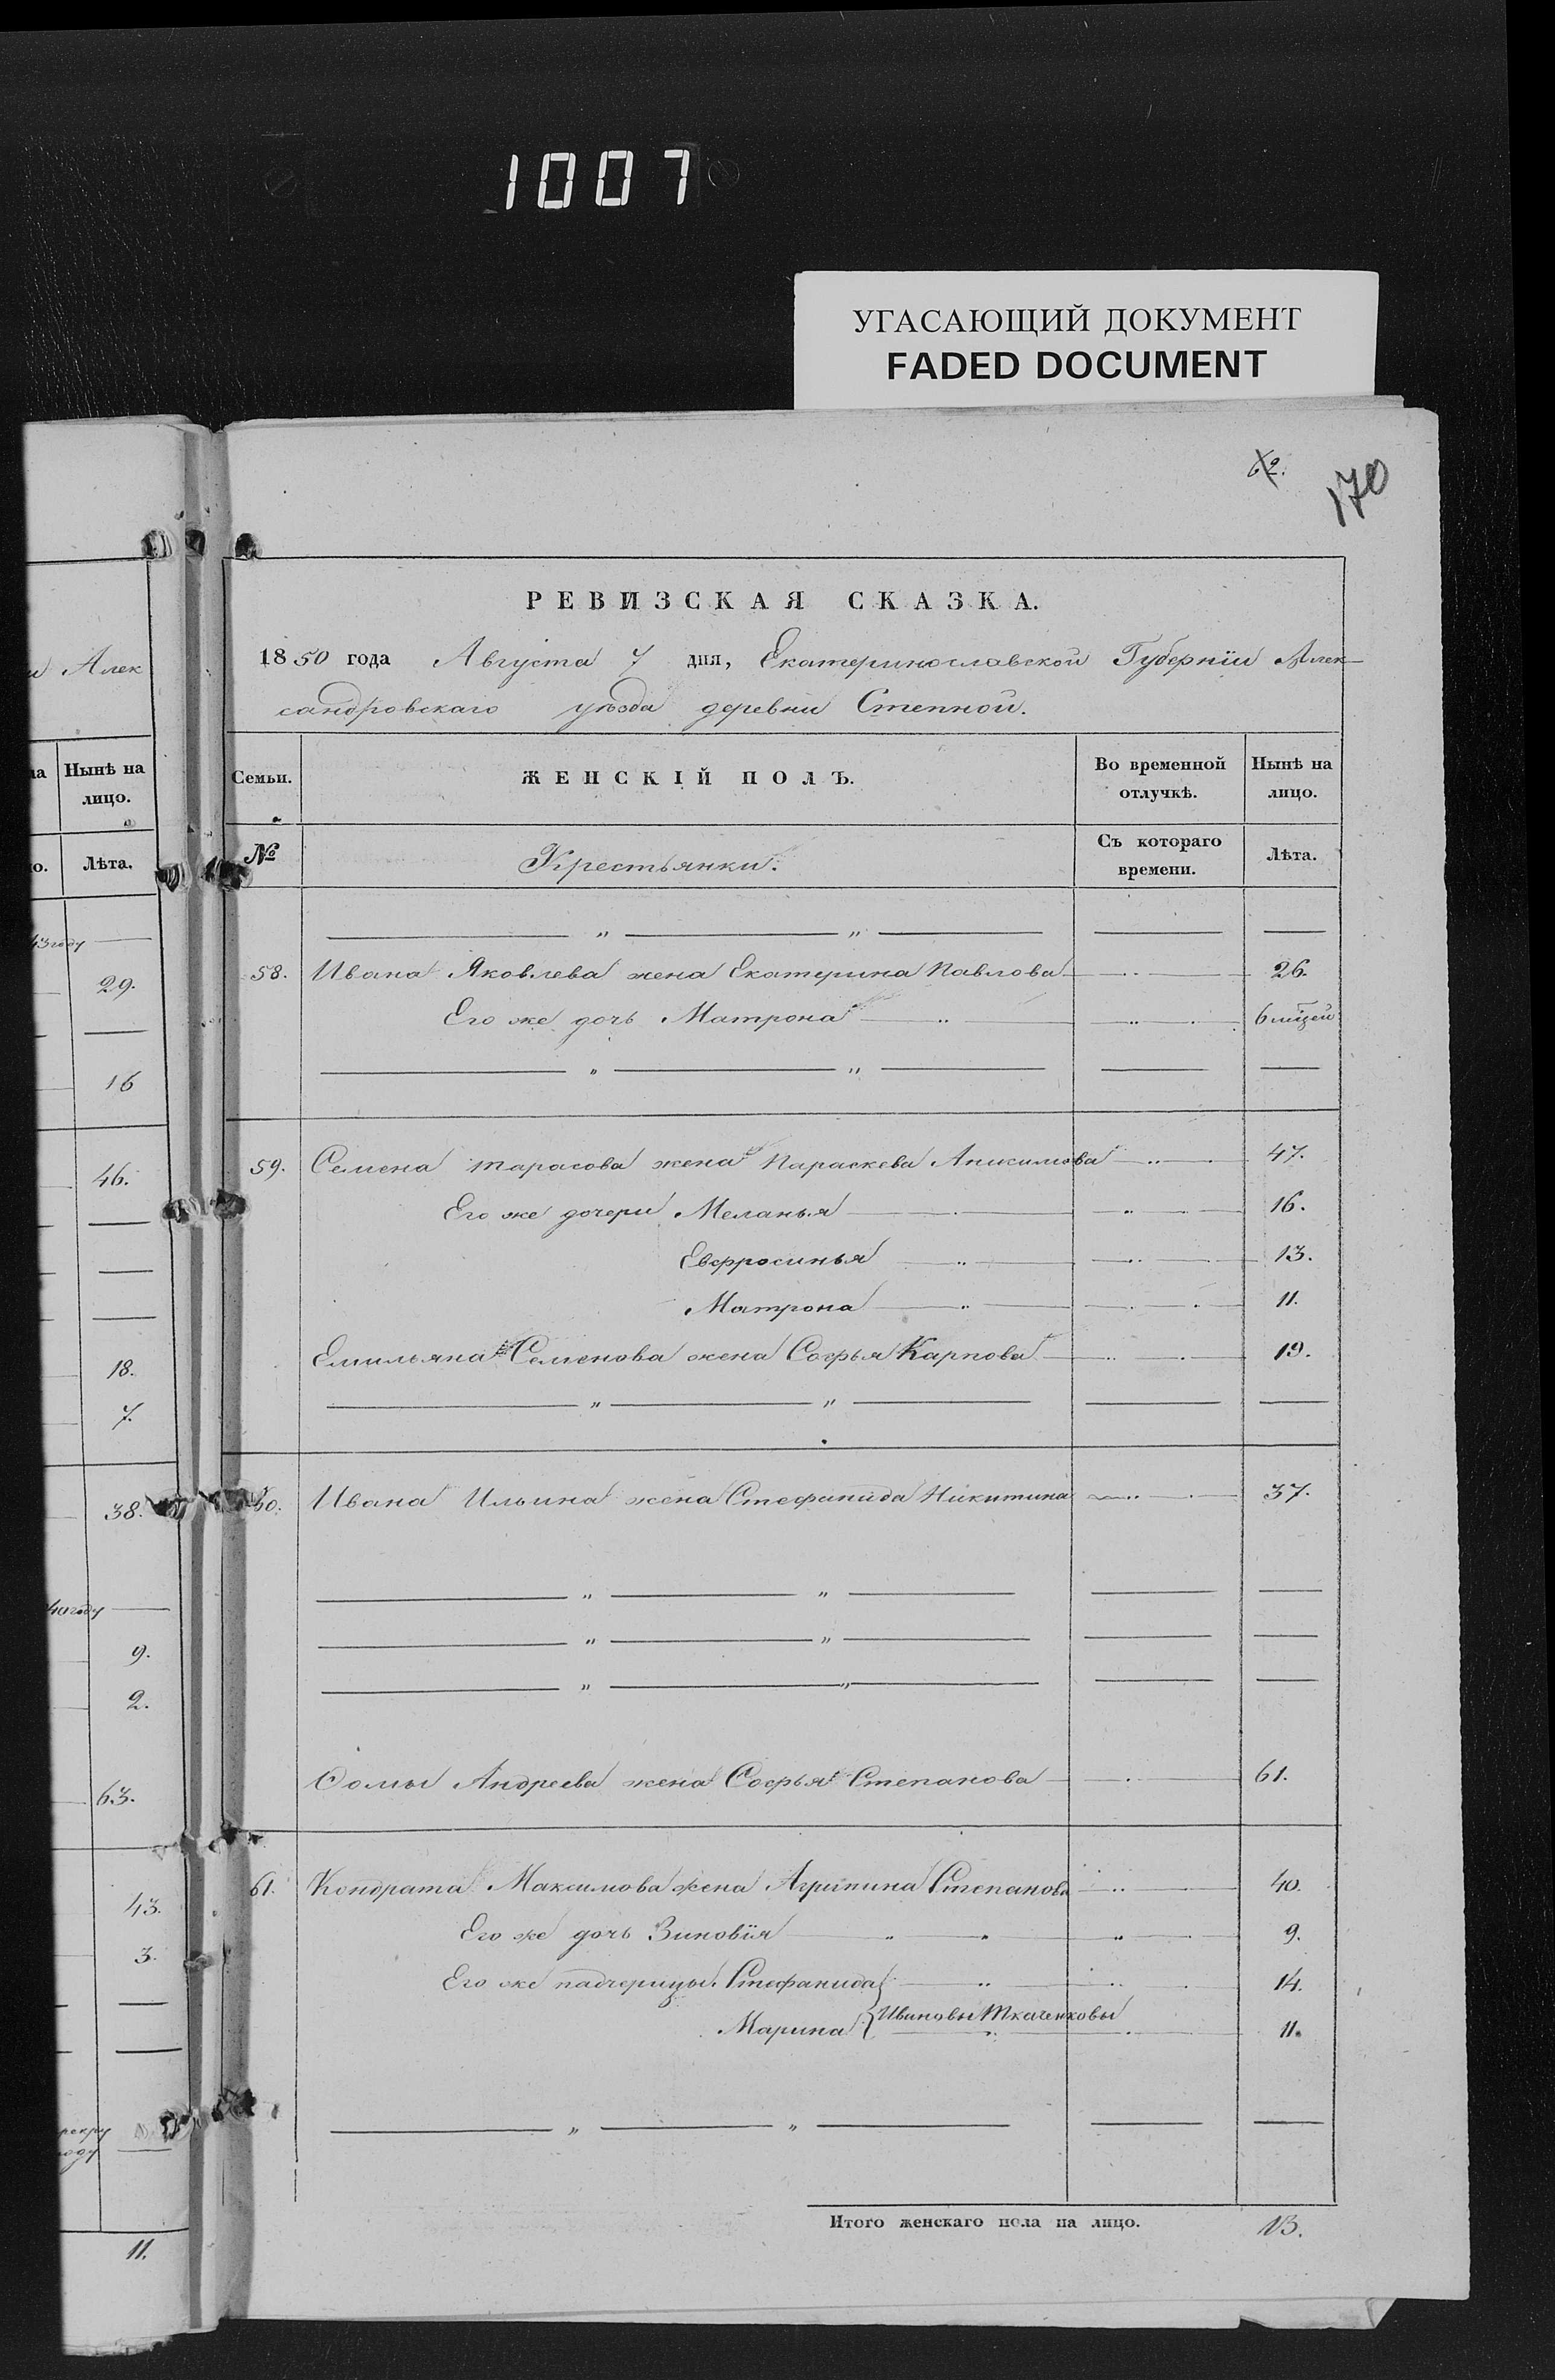 1007
УГАСАЮЩИЙ ДОКУМЕНТ
FADED DOCUMENT
62.
170
РЕВИЗСКАЯ СКАЗКА.
1850 года Августа 7 дня, Екатеринославской Губернии Алек-
сандровскаго уѣзда деревни Степной.
Семьи. ЖЕНСКІЙ ПОЛЪ. Во временной отлучкѣ. Нынѣ на лицо.
№ Крестьянки. Съ котораго времени. Лѣта.
58. Ивана Яковлева жена Екатерина Павлова 26.
Его же дочь Матрона 6 мѣцей
59. Семена Тарасова жена Параскева Анисимова 47.
Его же дочери Меланья 16.
Евфросинья 13.
Матрона 11.
Емильяна Семенова жена Софья Карпова 19.
60. Ивана Ильина жена Стефанида Никитина 37.
Ѳомы Андреева жена Софья Степанова 61.
61. Кондрата Максимова жена Агрипина Степанова 40.
Его же дочь Зиновія 9.
Его же падчерицы Стефанида 14.
Марина } Ивановы Ткаченковы 11.
Итого женскаго пола на лицо. 13.
и Алек
на Нынѣ на
лицо.
о. Лѣта.
43 году
29.
16
46.
18.
7.
38.
40 году
9.
2.
63.
43.
3.
рекру
году
11.